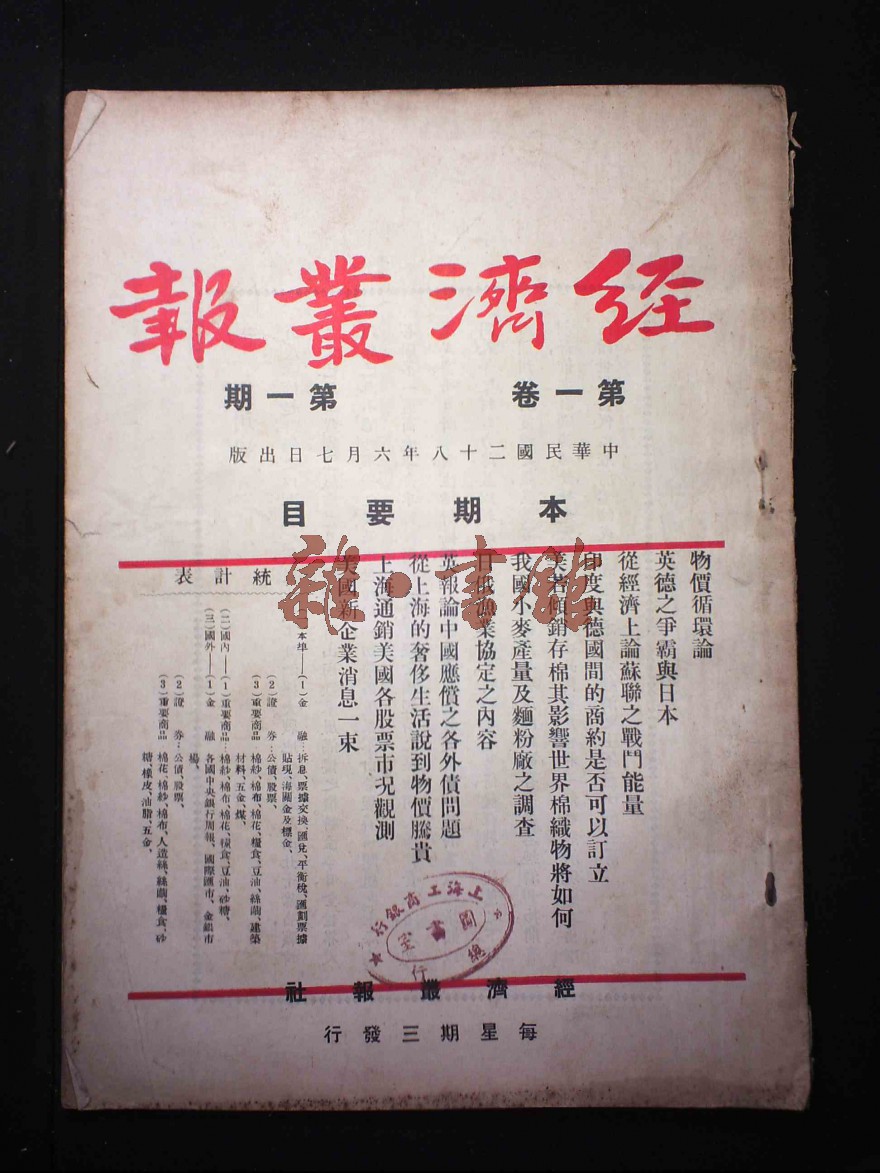 經濟叢報
第一卷 第一期
中華民國二十八年六月七日出版
本期要目
物價循環論
英德之爭霸與日本
從經濟上論蘇聯之戰鬥能量
印度與德國間的商約是否可以訂立
美若傾銷存棉其影響世界棉織物將如何
我國小麥產量及麵粉廠之調查
日俄漁業協定之內容
英報論中國應償之各外債問題
從上海的奢侈生活說到物價騰貴
上海通銷美國各股票市況觀測
美國新企業消息一束
統計表
本埠——(1)金融：拆息、票據交換、匯兌、平衡稅、匯劃票據
貼現、海關金及標金、
(2)證券：公債、股票、
(3)重要商品 棉紗、棉布、棉花、糧食、豆油、絲繭、建築
材料、五金、煤、
(二)國內——(1)重要商品：棉紗、棉布、棉花、糧食、豆油、砂糖、
(三)國外——(1)金融 各國中央銀行周報、國際匯市、金銀市
場、
(2)證券：公債、股票、
(3)重要商品 棉花、棉紗、棉布、人造絲、絲繭、糧食、砂
糖、橡皮、油脂、五金、
上海工商銀行
圖書室
總行
經濟叢報社
每星期三發行
雜·書館